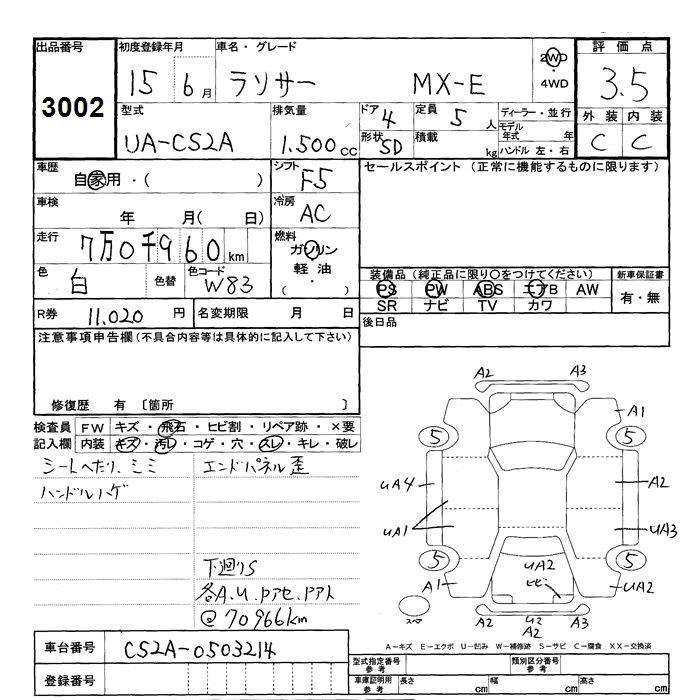 出品番号 初度登録年月 車名・グレード 評価点
3002 15 6月 ラソサー MX-E 2WD・4WD 3.5
型式 排気量 ドア 4 定員 5人 ディーラー・並行 外装 内装
UA-CS2A 1.500cc 形状 SD 積載 kg モデル年式 年 ハンドル 左・右 C C
車歴 自家用・( ) シフト F5 セールスポイント(正常に機能するものに限ります)
車検 年 月(日) 冷房 AC
走行 7万0千960km 燃料 ガソリン 軽油・( )
色 白 色替 色コード W83
装備品(純正品に限り○をつけてください) 新車保証書
PS PW ABS エアB AW 有・無
SR ナビ TV カワ
R券 11.020円 名変期限 月 日 後日品
注意事項申告欄(不具合内容等は具体的に記入して下さい)
修復歴 有 〔箇所 〕
検査員 FW キズ・飛石・ヒビ割・リペア跡・×要
記入欄 内装 キズ・汚レ・コゲ・穴・スレ・キレ・破レ
シートへたり、ミミ エンドパネル歪
ハンドルハゲ
下廻りS
各A.U.Pアセ.Pアト
@70966km
A2 A3
A1
5 5
UA4 A2
UA1 UA3
5 5
A1 UA2 UA2
ヒビ
スペ A2 U2 A3
A2
A-キズ E-エクボ U-凹み W-補修跡 S-サビ C-腐食 XX-交換済
車台番号 CS2A-0503214
登録番号
型式指定番号 参考 類別区分番号 参考
車庫証明用 参考 長さ cm 幅 cm 高さ cm